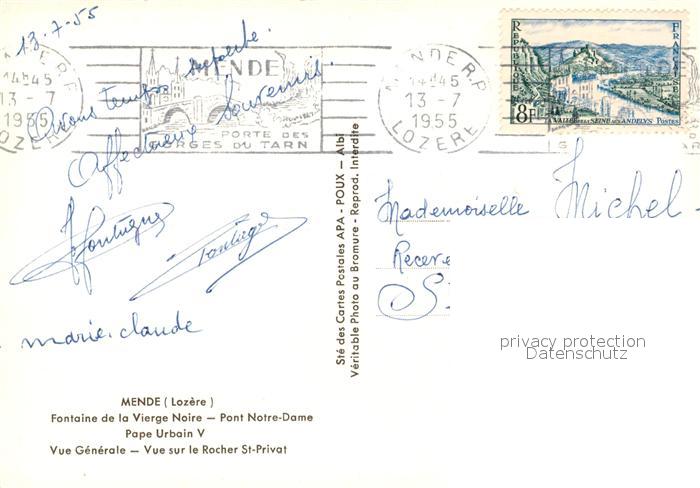 13.7.55
Avons temps superbe.
Affectueux souvenirs.
marie-claude
MENDE R.P.
14H45
13 - 7
1955
LOZERE
MENDE
PORTE DES
GORGES DU TARN
MENDE R.P.
14H45
13 - 7
1955
LOZERE
REPUBLIQUE
FRANÇAISE
8F
VALLÉE DE LA SEINE AUX ANDELYS POSTES
Sté des Cartes Postales APA - POUX - Albi
Véritable Photo au Bromure - Reprod. Interdite
Mademoiselle Michel-
Receve
S
privacy protection
Datenschutz
MENDE ( Lozère )
Fontaine de la Vierge Noire — Pont Notre-Dame
Pape Urbain V
Vue Générale — Vue sur le Rocher St-Privat